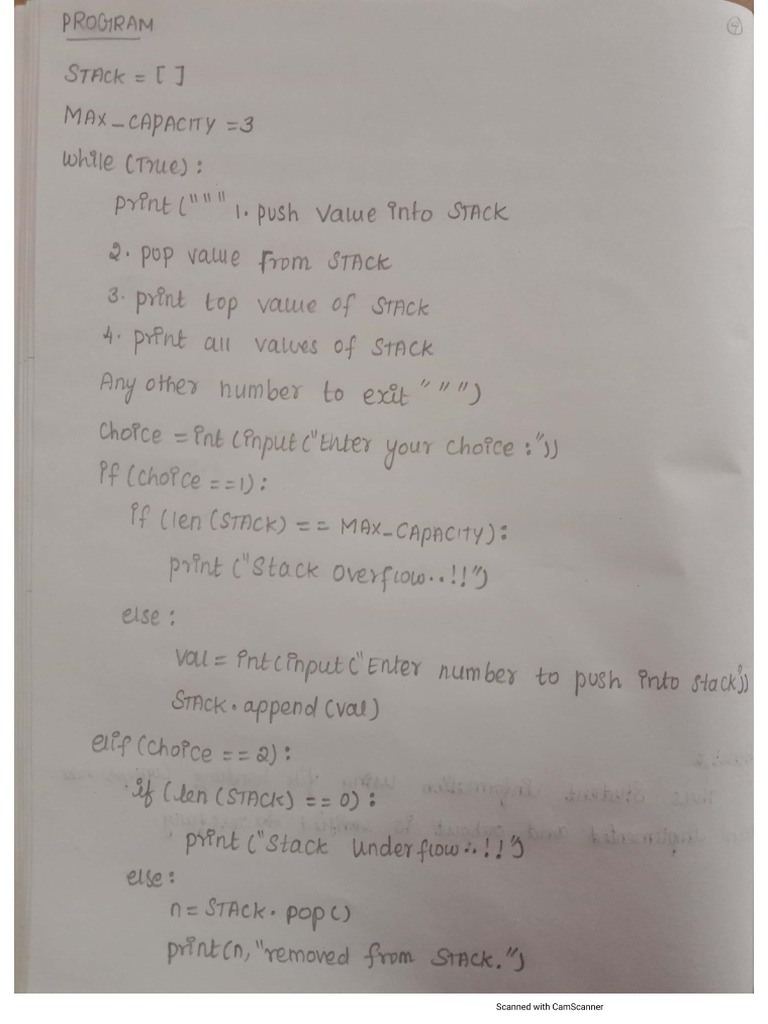 PROGRAM
4
STACK = [ ]
MAX_CAPACITY =3
while (True) :
print (""" 1. push value into STACK
2. pop value from STACK
3. print top value of STACK
4. print all values of STACK
Any other number to exit """)
choice = int (input ("Enter your choice :"))
if (choice ==1) :
if (len (STACK) == MAX_CAPACITY) :
print ("Stack overflow..!!")
else :
val = int (input ("Enter number to push into stack"))
STACK.append (val)
elif (choice == 2) :
if (len (STACK) == 0) :
print ("Stack underflow..!!")
else :
n = STACK.pop()
print (n, "removed from STACK.")
Scanned with CamScanner